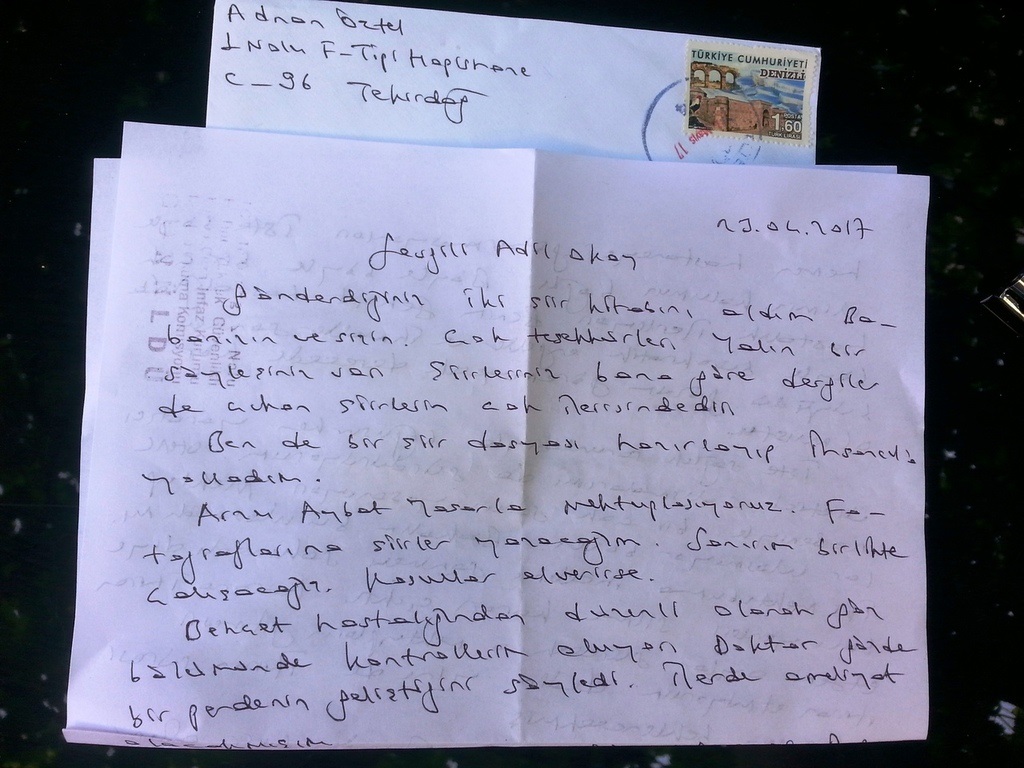 Adnan Öztel
1 Nolu F-Tipi Hapishane
C-96 Tekirdağ
TÜRKİYE CUMHURİYETİ
DENİZLİ
POSTA
1.60
TÜRK LİRASI
23.04.2017
Sevgili Adil Okay
Gönderdiğiniz iki şiir kitabını aldım Ba-
banızın ve sizin. Çok teşekkürler. Yalın bir
söyleşiniz var. Şiirleriniz bana göre dergiler
de çıkan şiirlerin çok ilerisindedir
Ben de bir şiir dosyası hazırlayıp
yolladım.
Arzu Aybat Yaşarla mektuplaşıyoruz. Fo-
toğraflarına şiirler yazacağım. Sanırım birlikte
çalışacağız. Koşullar elverirse.
Behçet hastalığından düzenli olarak göz
bölümünde kontrollerim oluyor. Doktor gözde
bir perdenin geliştiğini söyledi. İlerde ameliyat
olacakmışım